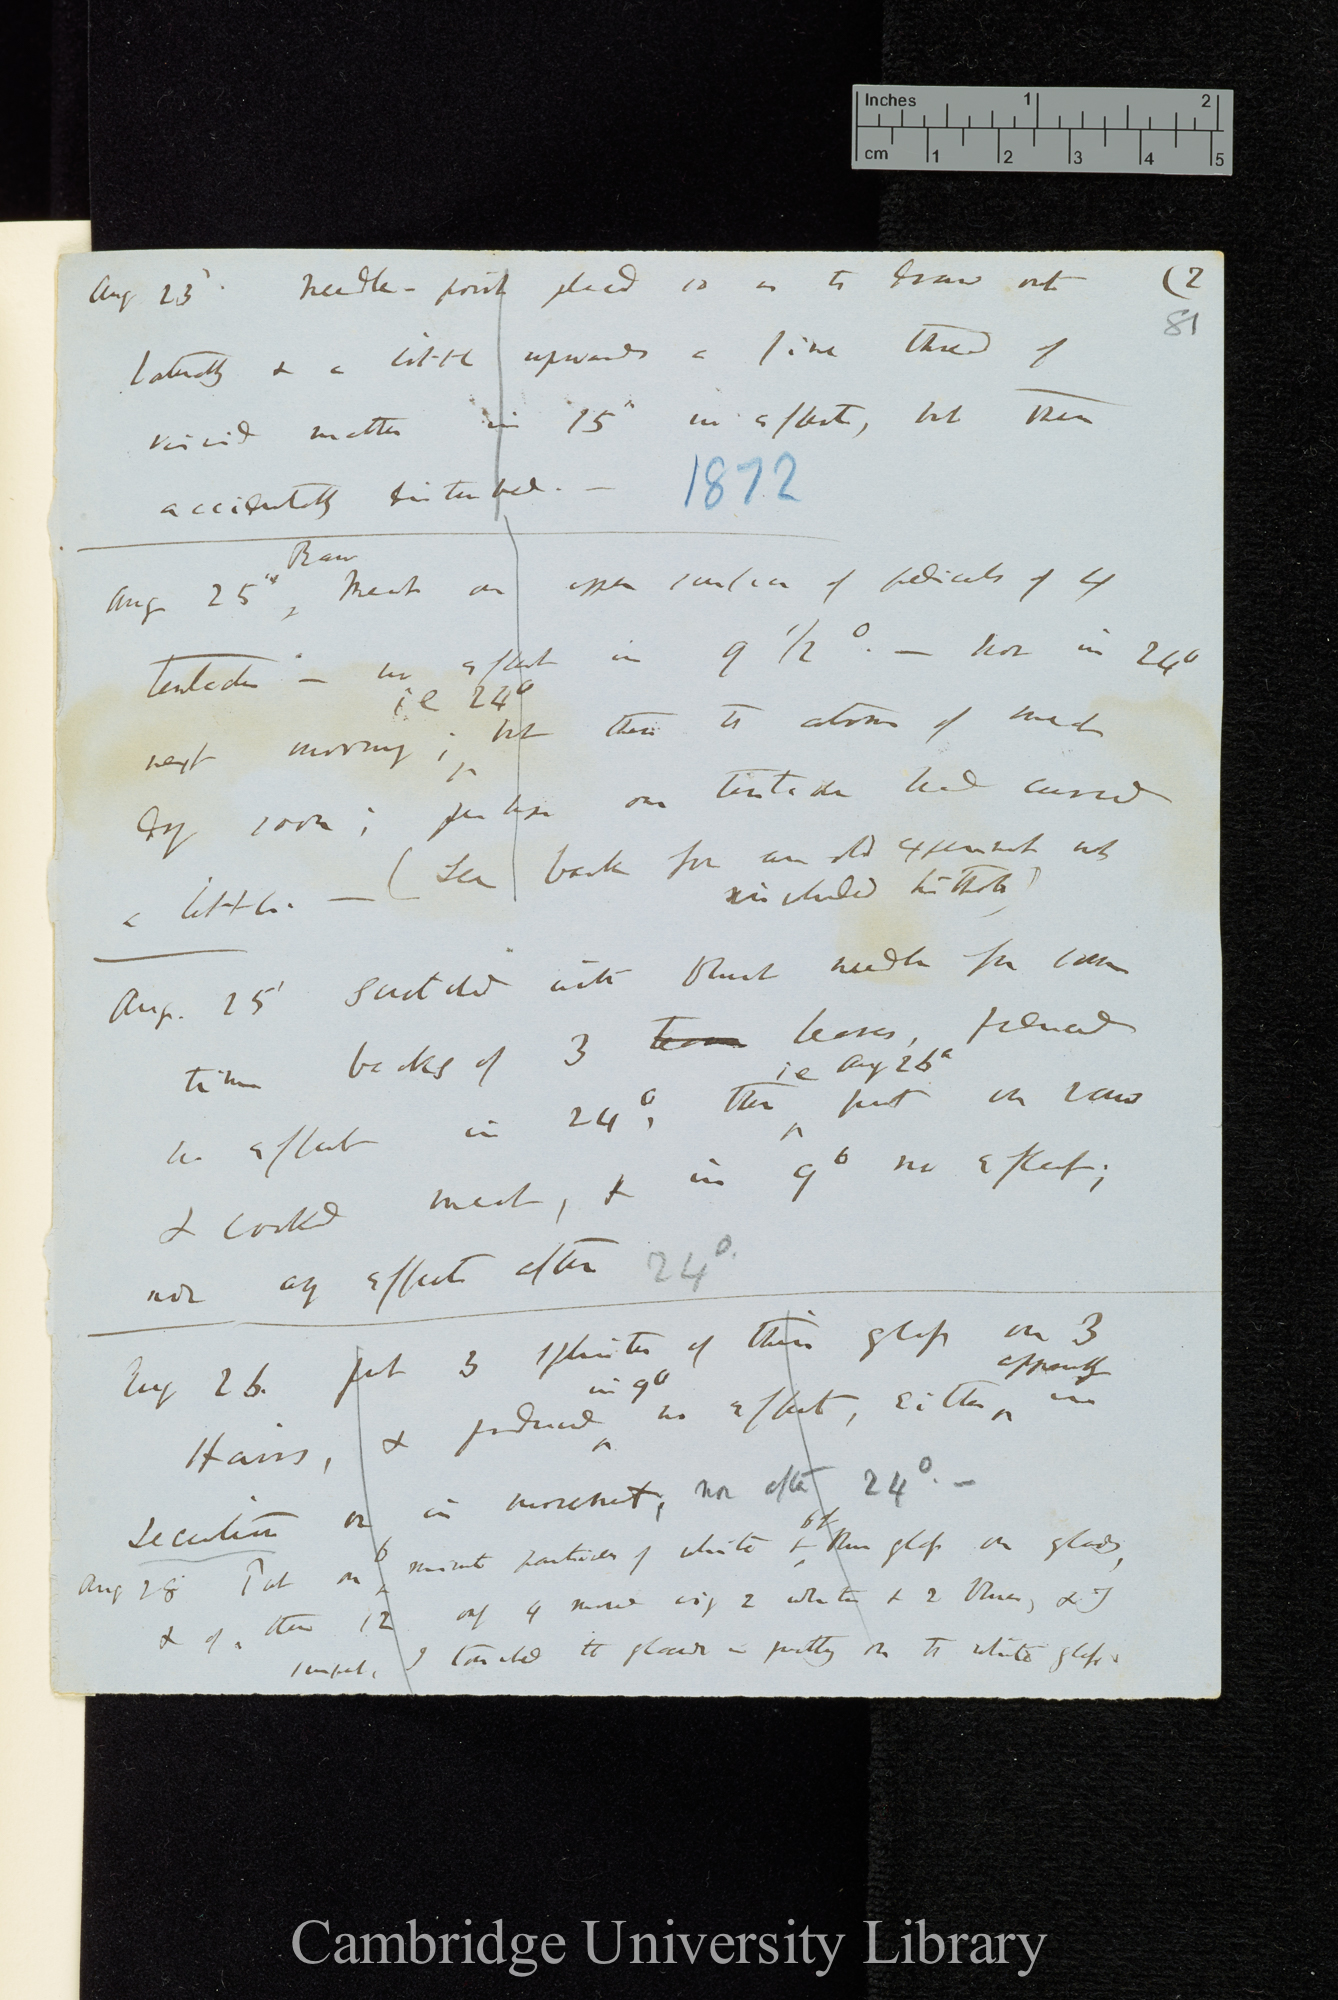 Inches 1 2
cm 1 2 3 4 5
Aug 23 needle-point placed so as to draw out (2
81
laterally & a little upwards a fine thread of
viscid matter in 15" no effect, but then
accidentally disturbed. —
1872
Raw
Aug 25th, Meat on upper surface of pedicels of 4
tentacles — no effect in 9 1/2°. — Nor in 24°
ie 24°
next morning; but then the atoms of meat
dry soon; perhaps one tentacle had curved
a little. — (See back for an old experiment not
included hitherto)
Aug. 25 Scratched with blunt needle for some
time backs of 3 leaves, produced
ie Aug 26th
no effect in 24°, then put on raw
& cooked meat, & in 9° no effect;
nor any effect after 24°.
Aug 26. put 3 splinters of thin glass on 3
in 9° apparently
Hairs, & produced no effect, either in
secretion or in movement, nor after 24°. —
Aug 28 Put on 6 minute particles of white & blue glass on glands,
& of then 12 only 4 moved viz 2 white & 2 blue, & I
I touched the glands on the white glass.
Cambridge University Library